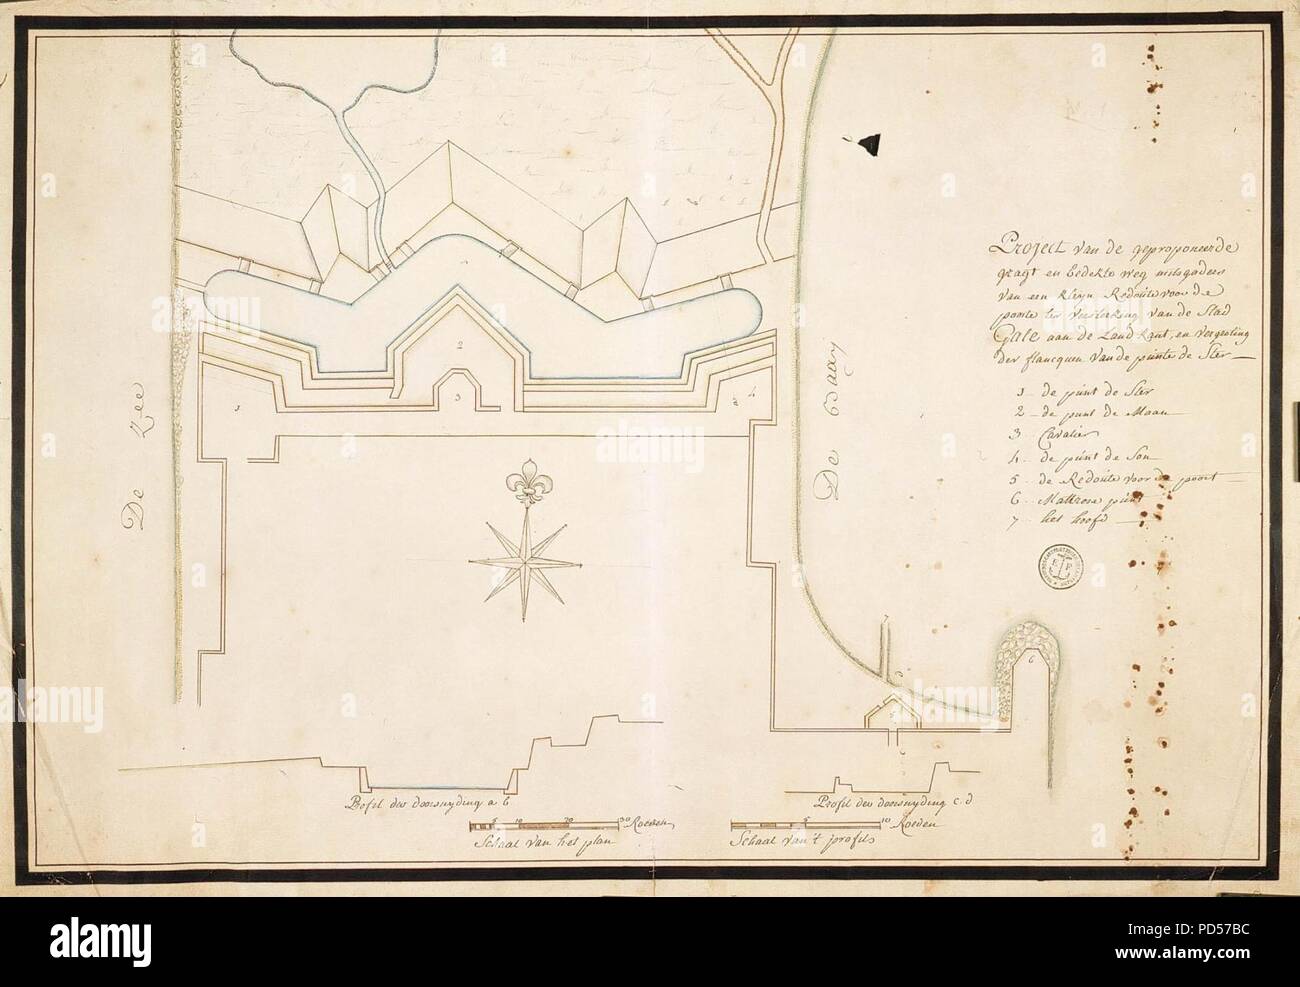 Project van de geproponeerde
gragt en bedekte weg mitsgaders
van een kleyn Redoute voor de
poorte ter versterking van de Stad
Gale aan de Land kant, en vergroting
der flancquen van de punte de Ster
1 de punt de Ster
2 de punt de Maan
3 Cavalier
4 de punt de Son
5 de Redoute voor de poort
6 Mattrose punt
7 het hoofd
De Zee
De Baay
1
2
3
4
5
6
7
c
d
Profil der doorsnyding a b
5 10 20 30 Roeden
Schaal van het plan
Profil der doorsnyding c.d
5 10 Roeden
Schaal van 't profils
alamy
alamy stock photo
PD57BC
www.alamy.com